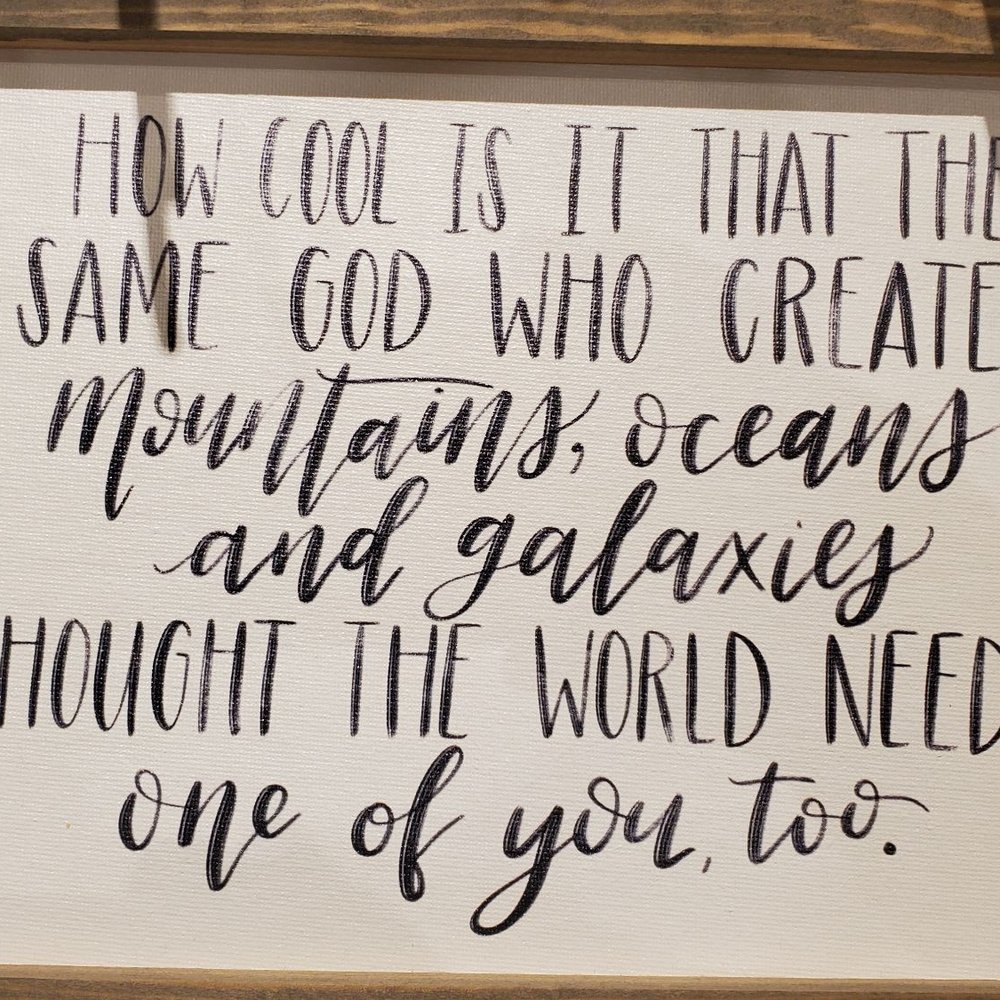 HOW COOL IS IT THAT THE
SAME GOD WHO CREATE
mountains, oceans
and galaxies
HOUGHT THE WORLD NEED
one of you, too.